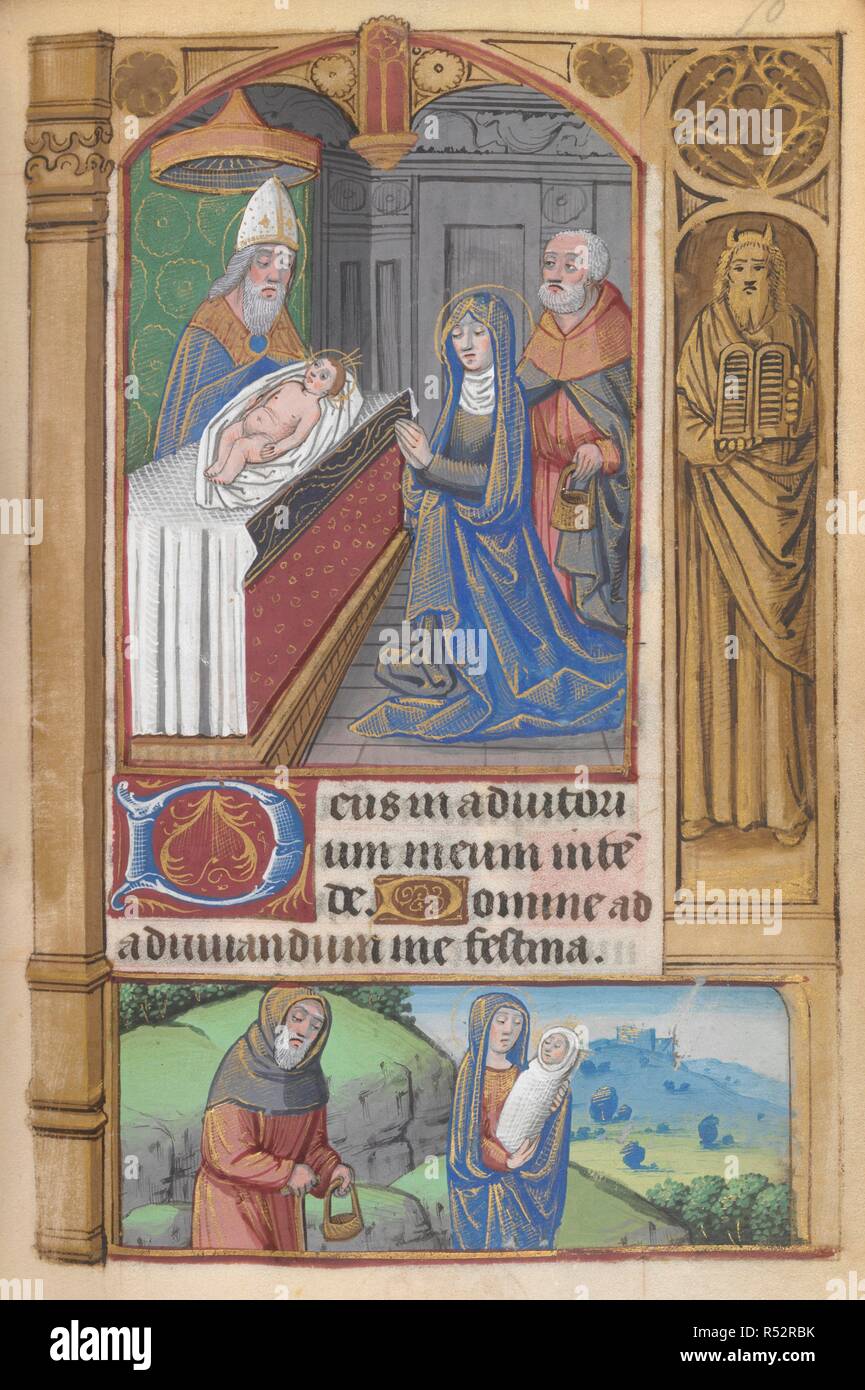 Deus in adiutori
um meum intē
de. Domine ad
adiuuandum me festina.
a
alamy
a
alamy
a
alamy
Image ID: R52RBK
www.alamy.com